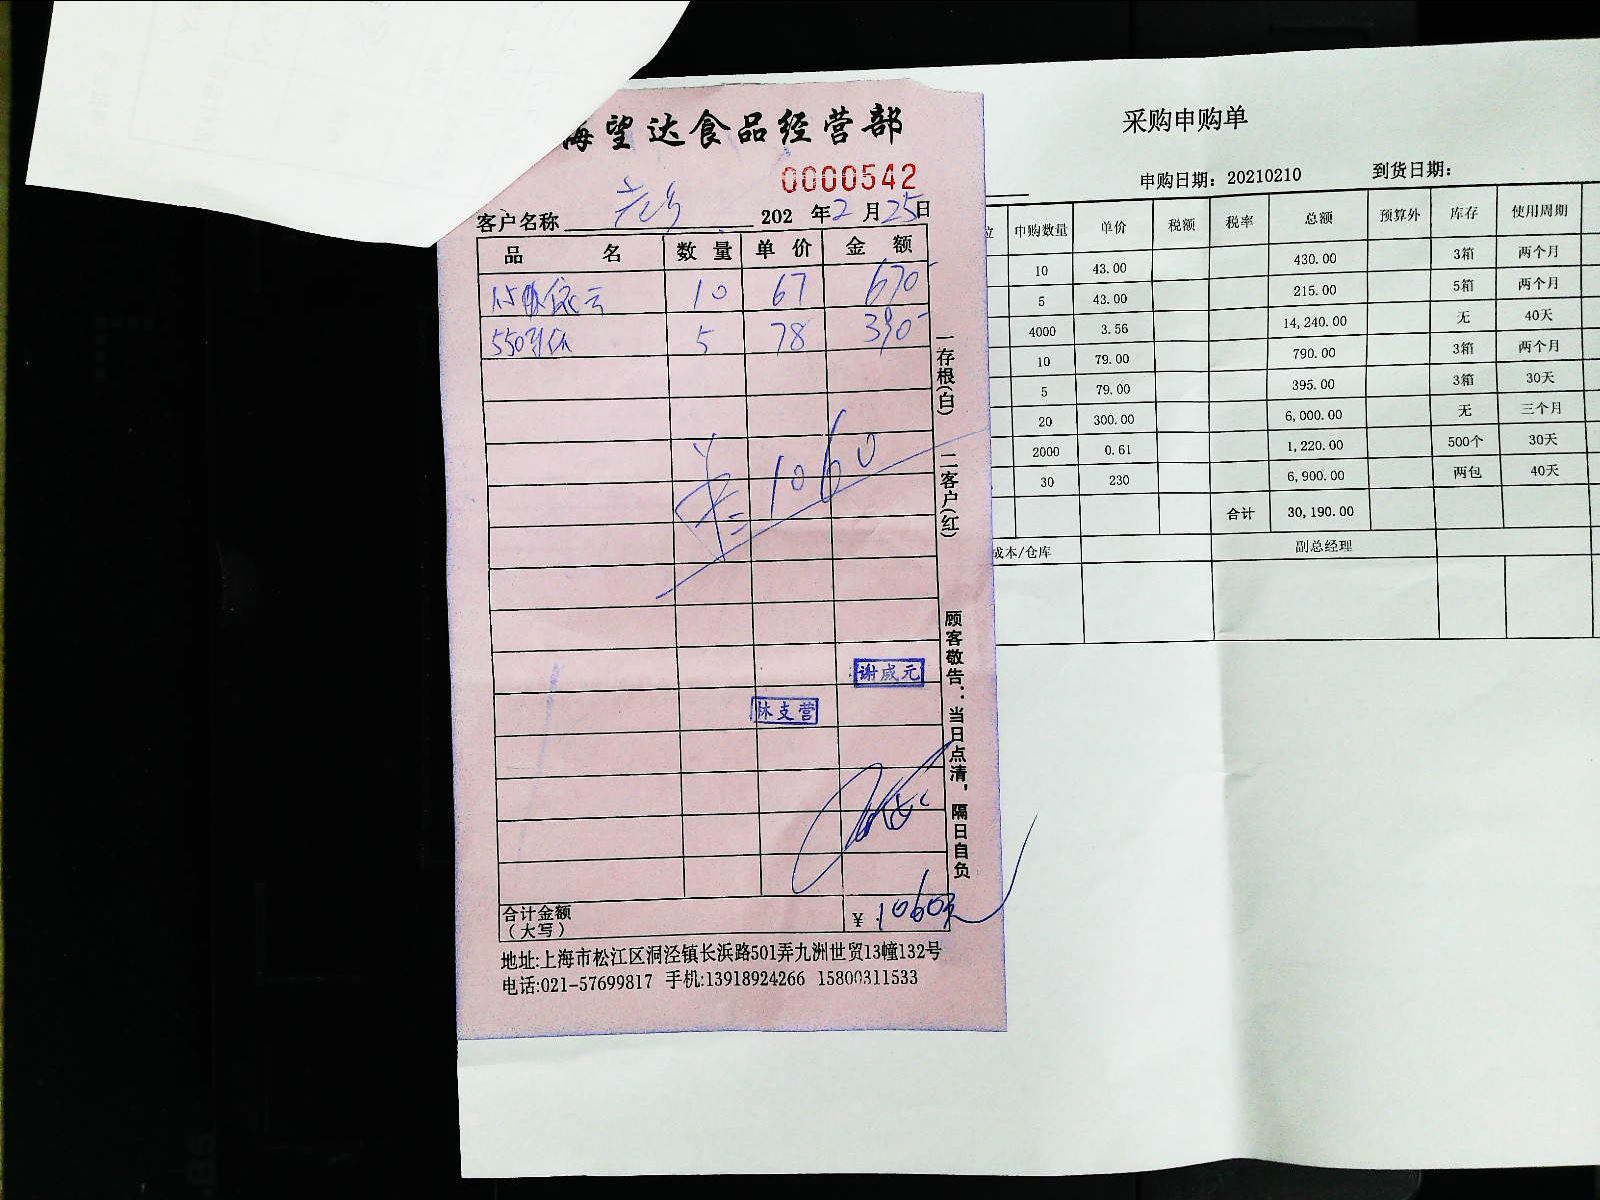 海望达食品经营部
0000542
客户名称 202 年2月25日
品名 数量 单价 金额
依云 10 67 670-
550 5 78 390-
1060
一存根(白) 二客户(红) 顾客敬告：当日点清，隔日自负
谢成元
林支营
合计金额（大写） ¥ 1060元
地址:上海市松江区洞泾镇长浜路501弄九洲世贸13幢132号
电话:021-57699817 手机:13918924266 15800311533
采购申购单
申购日期: 20210210 到货日期:
位 申购数量 单价 税额 税率 总额 预算外 库存 使用周期
10 43.00 430.00 3箱 两个月
5 43.00 215.00 5箱 两个月
4000 3.56 14,240.00 无 40天
10 79.00 790.00 3箱 两个月
5 79.00 395.00 3箱 30天
20 300.00 6,000.00 无 三个月
2000 0.61 1,220.00 500个 30天
30 230 6,900.00 两包 40天
合计 30,190.00
成本/仓库 副总经理